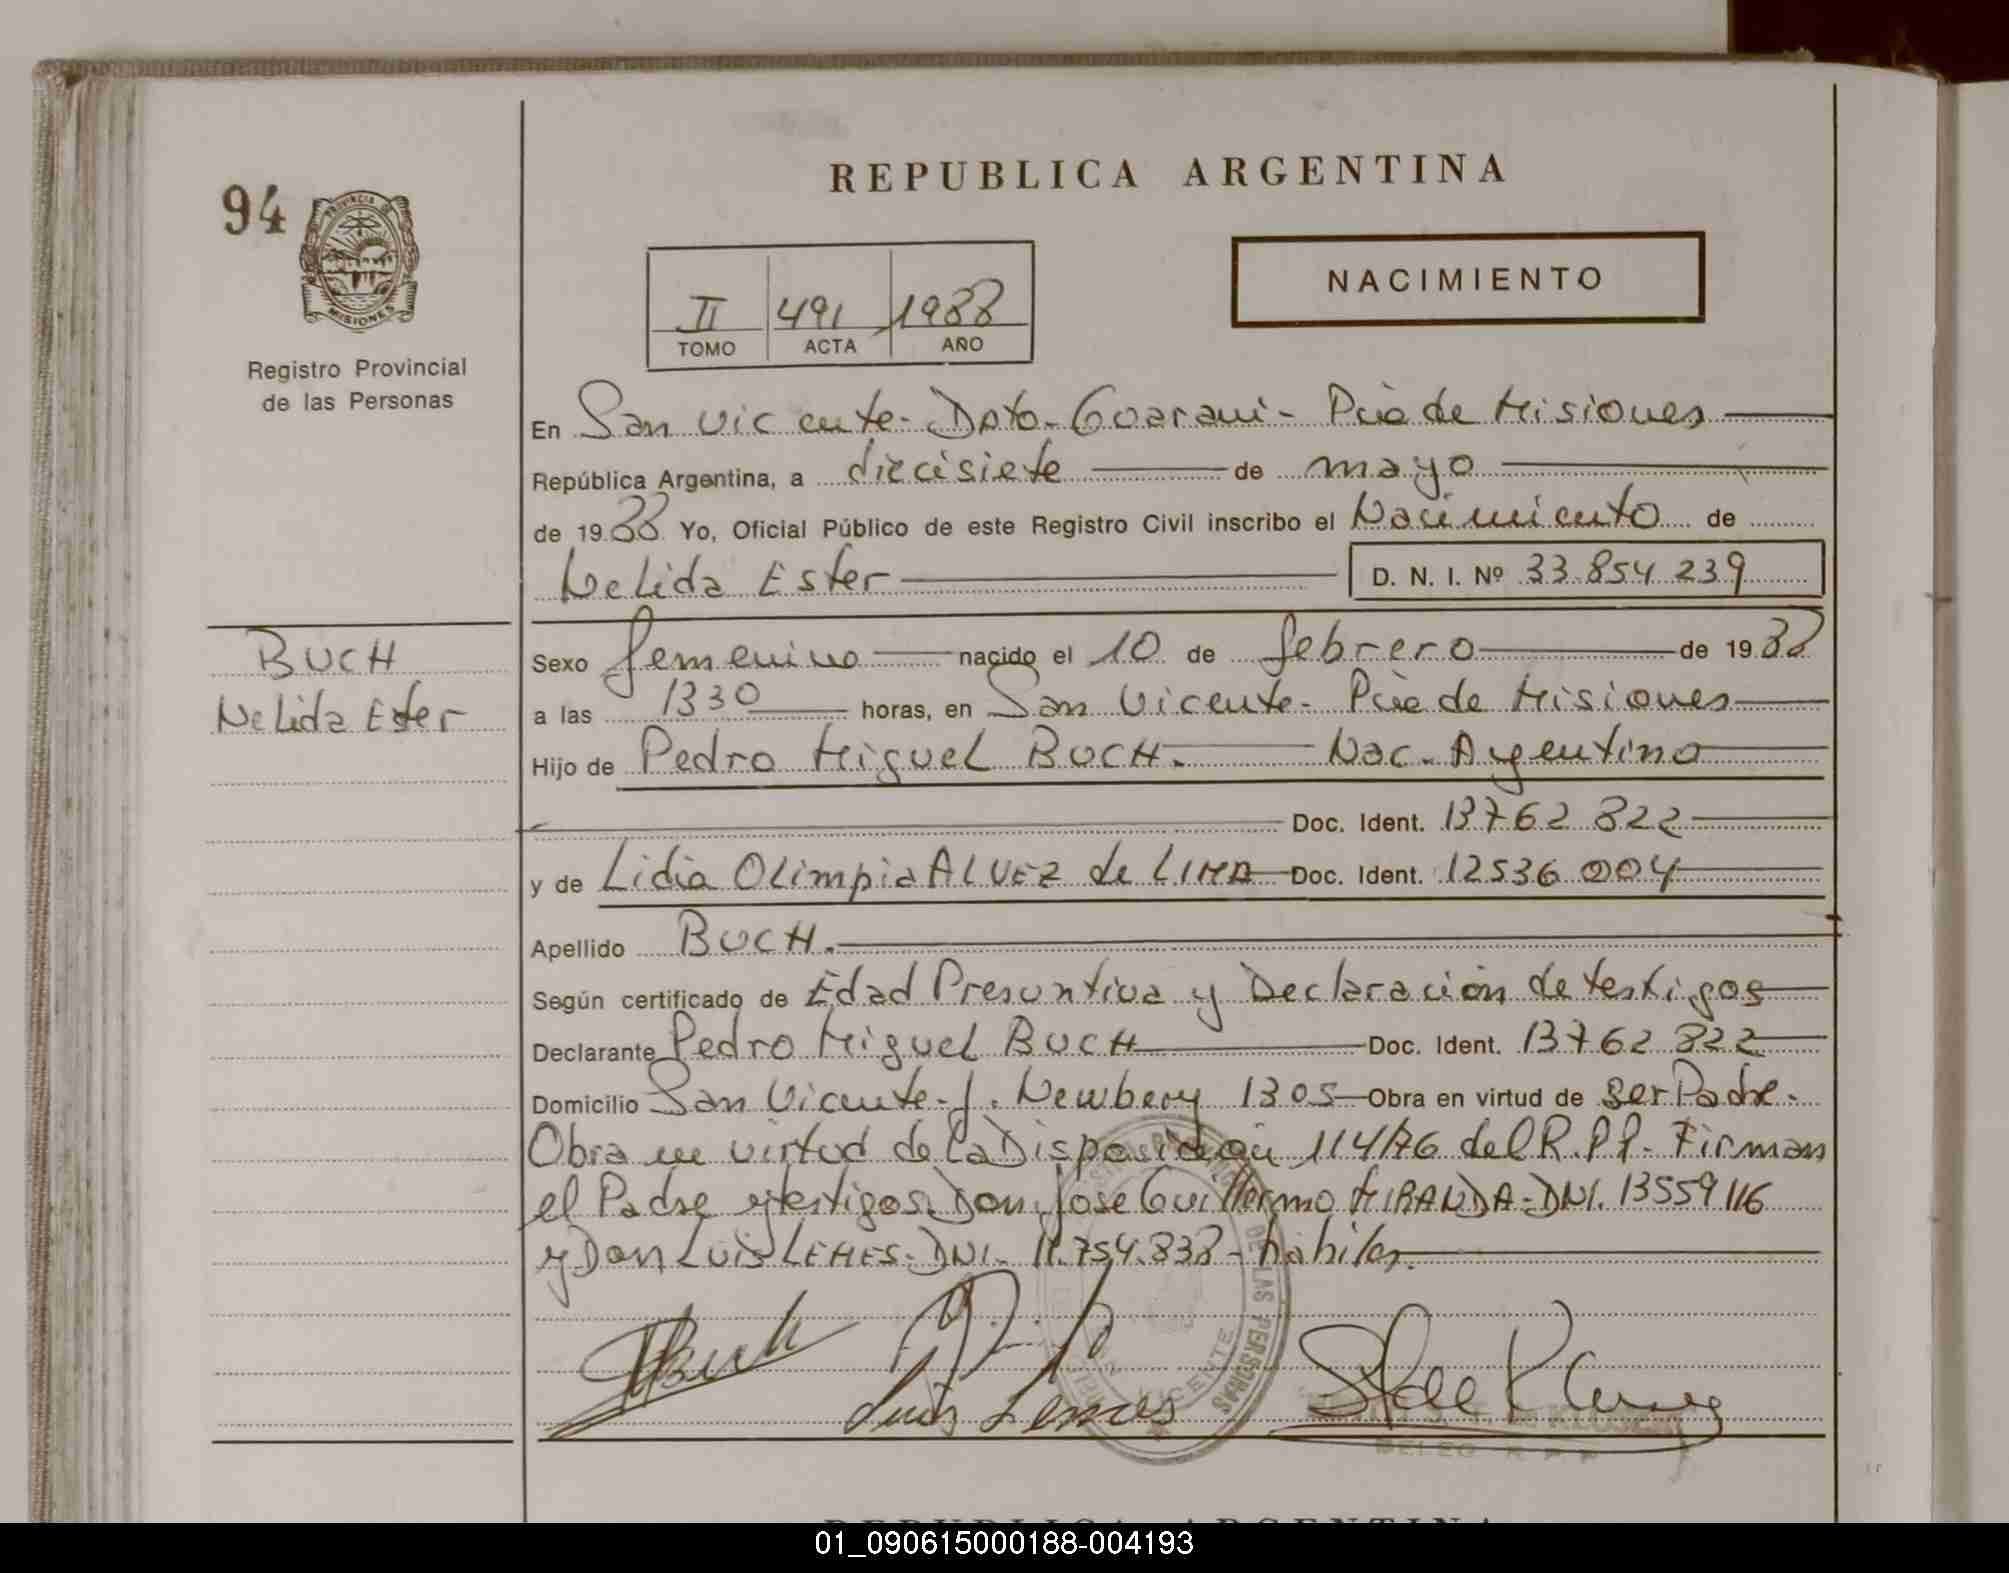 REPUBLICA ARGENTINA
94
PROVINCIA DE
MISIONES
Registro Provincial
de las Personas
II 491 1988
TOMO ACTA AÑO
NACIMIENTO
En San Vicente - Dpto. Guarani - Pcia de Misiones
República Argentina, a diecisiete de mayo
de 1988 Yo, Oficial Público de este Registro Civil inscribo el Nacimiento de
Nelida Ester D. N. I. Nº 33.854 239
BUCH
Nelida Ester
Sexo femenino nacido el 10 de febrero de 1988
a las 1330 horas, en San Vicente - Pcia de Misiones
Hijo de Pedro Miguel BUCH. Nac. Argentino
Doc. Ident. 13762 822
y de Lidia Olimpia ALVEZ de LIMA Doc. Ident. 12536 004
Apellido BUCH.
Según certificado de Edad Presuntiva y Declaración de testigos
Declarante Pedro Miguel BUCH Doc. Ident. 13762 822
Domicilio San Vicente - J. Newbery 1305 Obra en virtud de ser Padre.
Obra en virtud de la Disposición 114/76 del R.P.P. Firman
el Padre y testigos Don Jose Guillermo MIRANDA - DNI. 13559 116
y Don Luis LEMES - DNI. 11.754.838 - hábiles.
Buch
Luis Lemes
DE LAS PERSONAS
VICENTE
DELEG R P P
REPUBLICA ARGENTINA
01_090615000188-004193